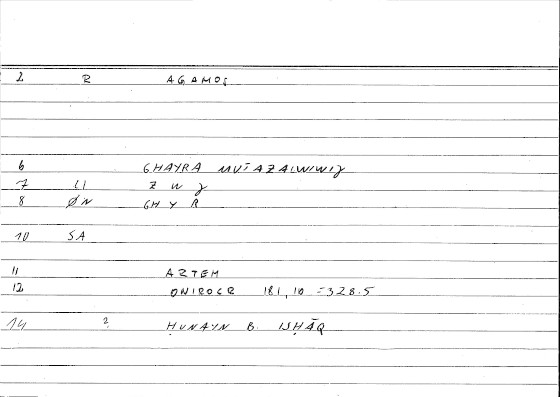 2 R AGAMOS
6 GHAYRA MUTAZAWWIǦ
7 LI Z W Ǧ
8 ØN GH Y R
10 SA
11 ARTEM
12 ONIROCR 181,10 = 328.5
14 ? ḤUNAYN B. ISḤĀQ